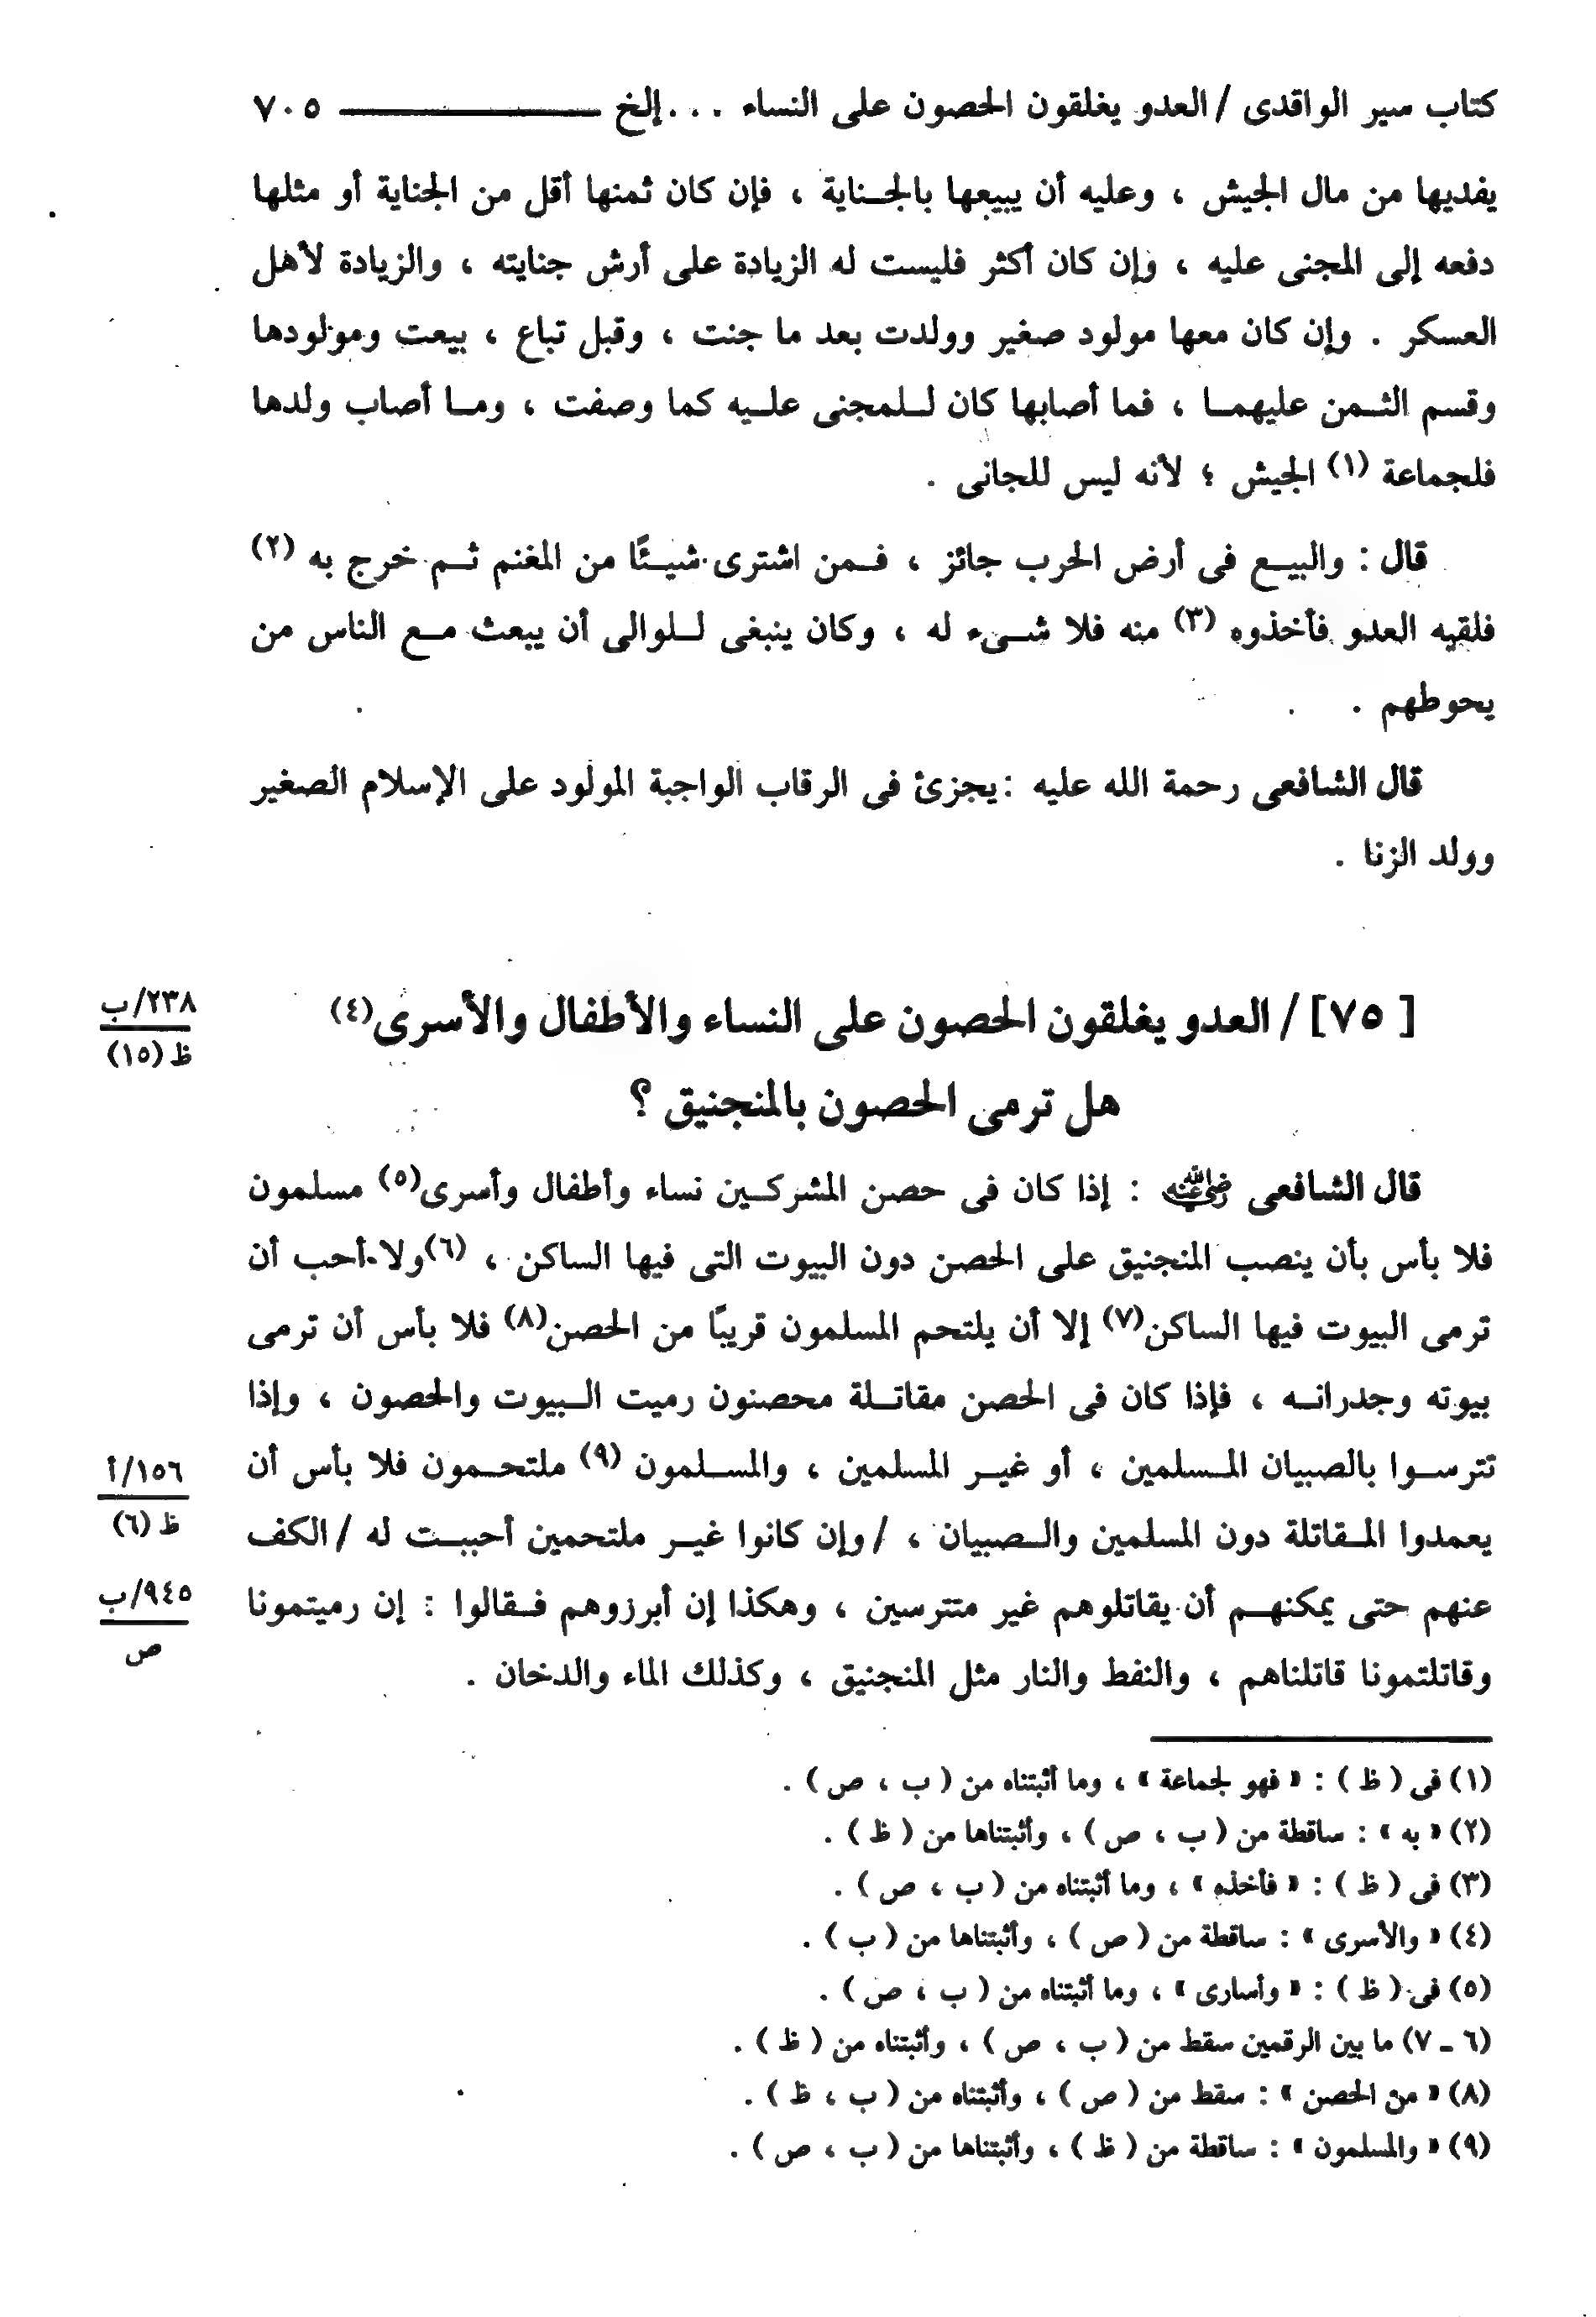 كتاب سير الواقدى / العدو يغلقون الحصون على النساء . . . إلخ ٧٠٥
يفديها من مال الجيش ، وعليه أن يبيعها بالجناية ، فإن كان ثمنها أقل من الجناية أو مثلها
دفعه إلى المجنى عليه ، وإن كان أكثر فليست له الزيادة على أرش جنايته ، والزيادة لأهل
العسكر . وإن كان معها مولود صغير وولدت بعد ما جنت ، وقبل تباع ، بيعت ومولودها
وقسم الثمن عليهما ، فما أصابها كان للمجنى عليه كما وصفت ، وما أصاب ولدها
فلجماعة (١) الجيش ؛ لأنه ليس للجانى .
قال : والبيع فى أرض الحرب جائز ، فمن اشترى شيئًا من المغنم ثم خرج به (٢)
فلقيه العدو فأخذوه (٣) منه فلا شىء له ، وكان ينبغى للوالى أن يبعث مع الناس من
يحوطهم .
قال الشافعى رحمة الله عليه : يجزئ فى الرقاب الواجبة المولود على الإسلام الصغير
وولد الزنا .
[ ٧٥] / العدو يغلقون الحصون على النساء والأطفال والأسرى(٤)
٢٣٨/ب
ظ (١٥)
هل ترمى الحصون بالمنجنيق ؟
قال الشافعى رضي الله عنه : إذا كان فى حصن المشركين نساء وأطفال وأسرى(٥) مسلمون
فلا بأس بأن ينصب المنجنيق على الحصن دون البيوت التى فيها الساكن ، (٦)ولا أحب أن
ترمى البيوت فيها الساكن(٧) إلا أن يلتحم المسلمون قريبًا من الحصن(٨) فلا بأس أن ترمى
بيوته وجدرانه ، فإذا كان فى الحصن مقاتلة محصنون رميت البيوت والحصون ، وإذا
تترسوا بالصبيان المسلمين ، أو غير المسلمين ، والمسلمون (٩) ملتحمون فلا بأس أن
١٥٦/أ
ظ (٦)
يعمدوا المقاتلة دون المسلمين والصبيان ، / وإن كانوا غير ملتحمين أحببت له / الكف
عنهم حتى يمكنهم أن يقاتلوهم غير متترسين ، وهكذا إن أبرزوهم فقالوا : إن رميتمونا
٩٤٥/ب
ص
وقاتلتمونا قاتلناهم ، والنفط والنار مثل المنجنيق ، وكذلك الماء والدخان .
(١) فى ( ظ ) : « فهو لجماعة » ، وما أثبتناه من ( ب ، ص ) .
(٢) « به » : ساقطة من ( ب ، ص ) ، وأثبتناها من ( ظ ) .
(٣) فى ( ظ ) : « فأخذه » ، وما أثبتناه من ( ب ، ص ) .
(٤) « والأسرى » : ساقطة من ( ص ) ، وأثبتناها من ( ب ) .
(٥) فى ( ظ ) : « وأسارى » ، وما أثبتناه من ( ب ، ص ) .
(٦ ـ ٧) ما بين الرقمين سقط من ( ب ، ص ) ، وأثبتناه من ( ظ ) .
(٨) « من الحصن » : سقط من ( ص ) ، وأثبتناه من ( ب ، ظ ) .
(٩) « والمسلمون » : ساقطة من ( ظ ) ، وأثبتناها من ( ب ، ص ) .